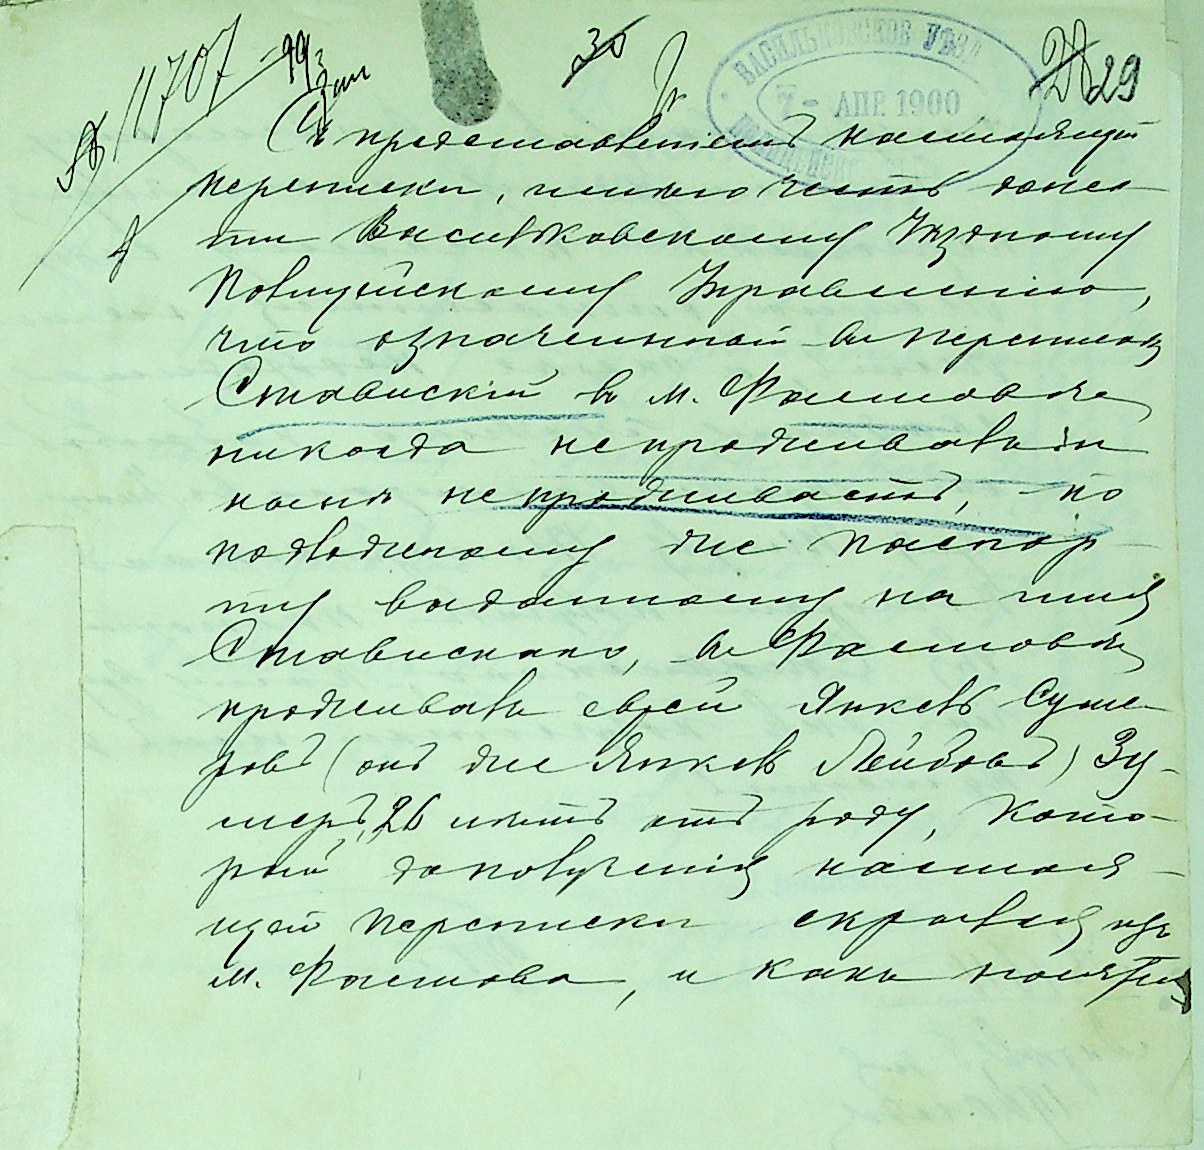 № 11707 - 99/3
30
28 29
ВАСИЛЬКОВСКОЕ УѢЗД
7 - АПР. 1900
ПОЛИЦЕЙСК
Съ представленіемъ настоящей
переписки, имѣю честь донес-
ти Васильковскому Уѣздному
Полицейскому Управленію,
что означенный въ перепискѣ
Ставискій въ м. Фастовѣ
никогда непроживалъ и
нынѣ непроживаетъ, по
подложному же паспор-
ту выданному на имя
Ставискаго, въ Фастовѣ
проживалъ еврей Янкель Суме-
ровъ (онъ же Янкель Лейбовъ) Зу-
меръ, 26 лѣтъ отъ роду, кото-
рый до полученія настоя-
щей переписки скрылся изъ
м. Фастова, и какъ